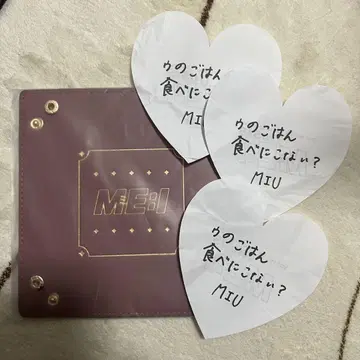 ME:I
ゥのごはん
食べにこ
MIU
ゥのごはん
食べにこない？
MIU
ゥのごはん
食べにこない？
MIU